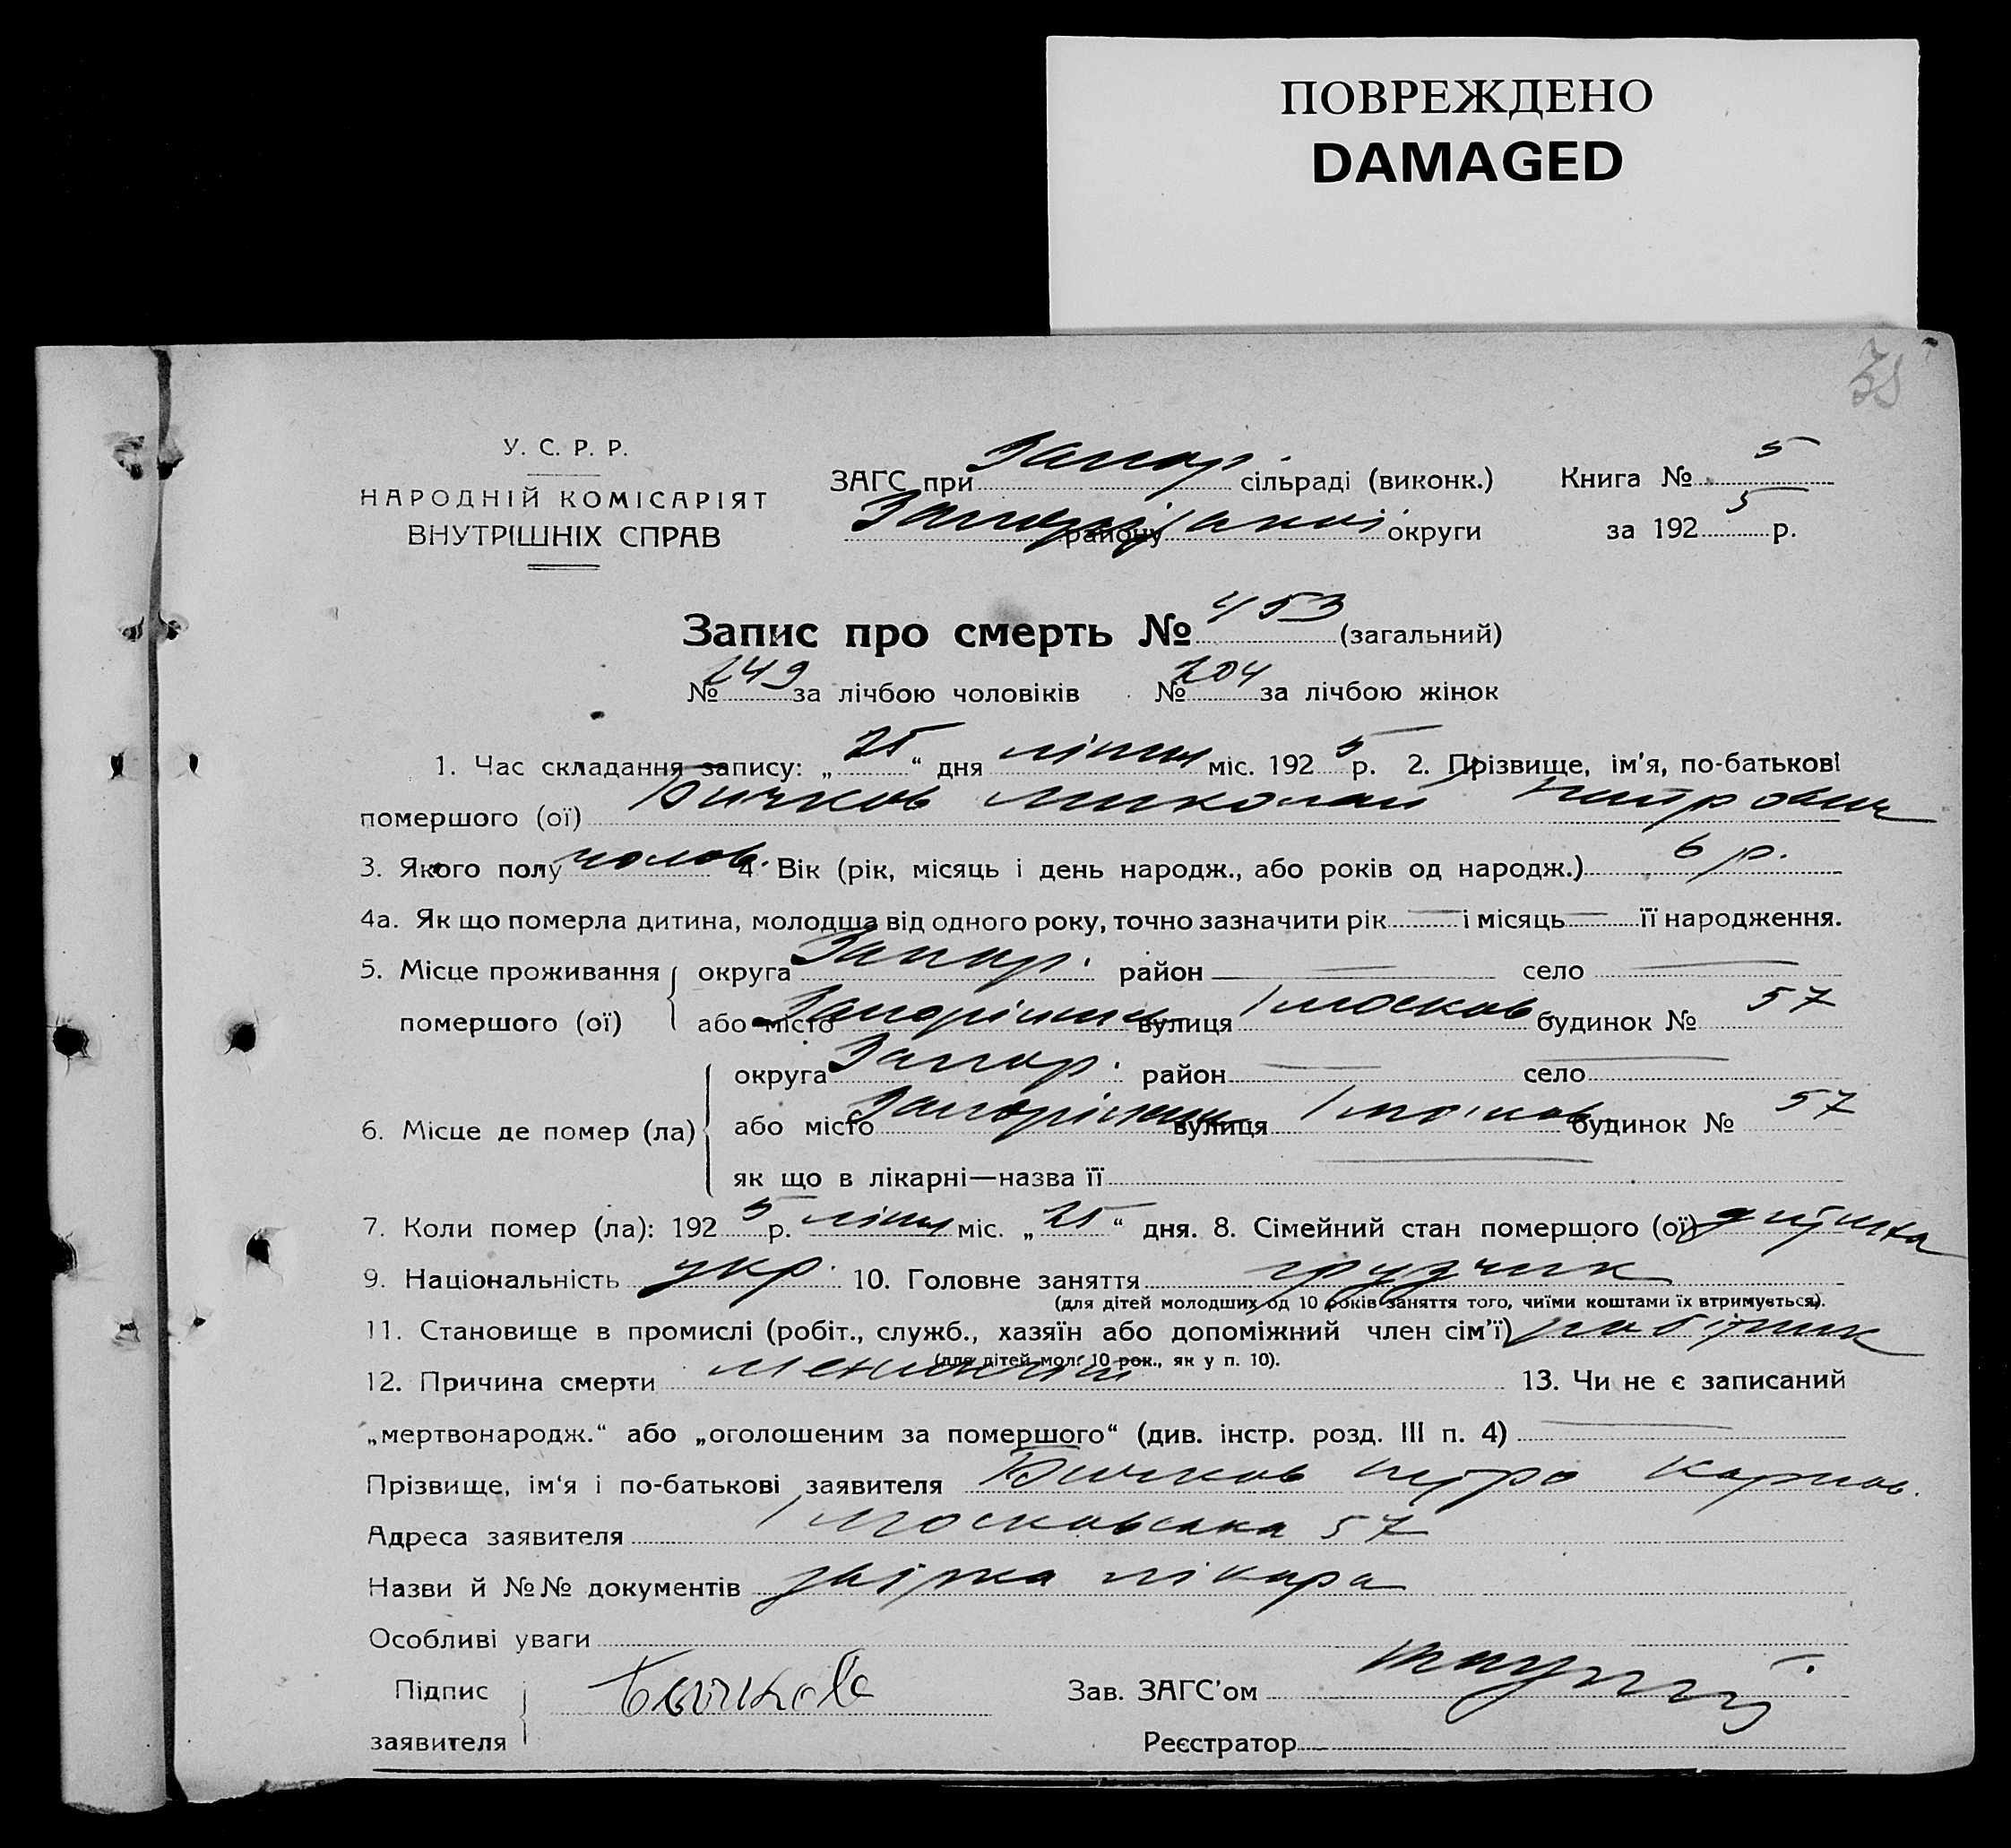 ПОВРЕЖДЕНО
DAMAGED
У. С. Р. Р.
НАРОДНІЙ КОМІСАРІЯТ
ВНУТРІШНІХ СПРАВ
ЗАГС при Запор. сільраді (виконк.)
району округи
Книга № 5
за 1925 р.
Запис про смерть № 453 (загальний)
№ 249 за лічбою чоловіків № 204 за лічбою жінок
1. Час складання запису: „25“ дня ліпня міс. 1925 р. 2. Прізвище, ім'я, по-батькові
помершого (ої) Бичков Миколай Петрович
3. Якого полу чолов. 4. Вік (рік, місяць і день народж., або років од народж.) 6 р.
4а. Як що померла дитина, молодша від одного року, точно зазначити рік — і місяць — її народження.
5. Місце проживання помершого (ої) округа Запор. район — село —
або місто Запоріжжя вулиця 1 Москов будинок № 57
6. Місце де помер (ла) округа Запор. район — село —
або місто Запоріжжя вулиця 1 Москов будинок № 57
як що в лікарні—назва її —
7. Коли помер (ла): 1925 р. ліпня міс. „25“ дня. 8. Сімейний стан помершого (ої) дитина
9. Національність укр. 10. Головне заняття грузчик
(для дітей молодших од 10 років заняття того, чиїми коштами їх втримується).
11. Становище в промислі (робіт., служб., хазяїн або допоміжний член сім'ї) робітник
(для дітей мол. 10 рок., як у п. 10).
12. Причина смерти 13. Чи не є записаний
„мертвонародж.“ або „оголошеним за помершого“ (див. інстр. розд. III п. 4) —
Прізвище, ім'я і по-батькові заявителя Бичков Петро Карпов.
Адреса заявителя 1 Московська 57
Назви й №№ документів лікаря
Особливі уваги
Підпис заявителя Зав. ЗАГС'ом
Реєстратор